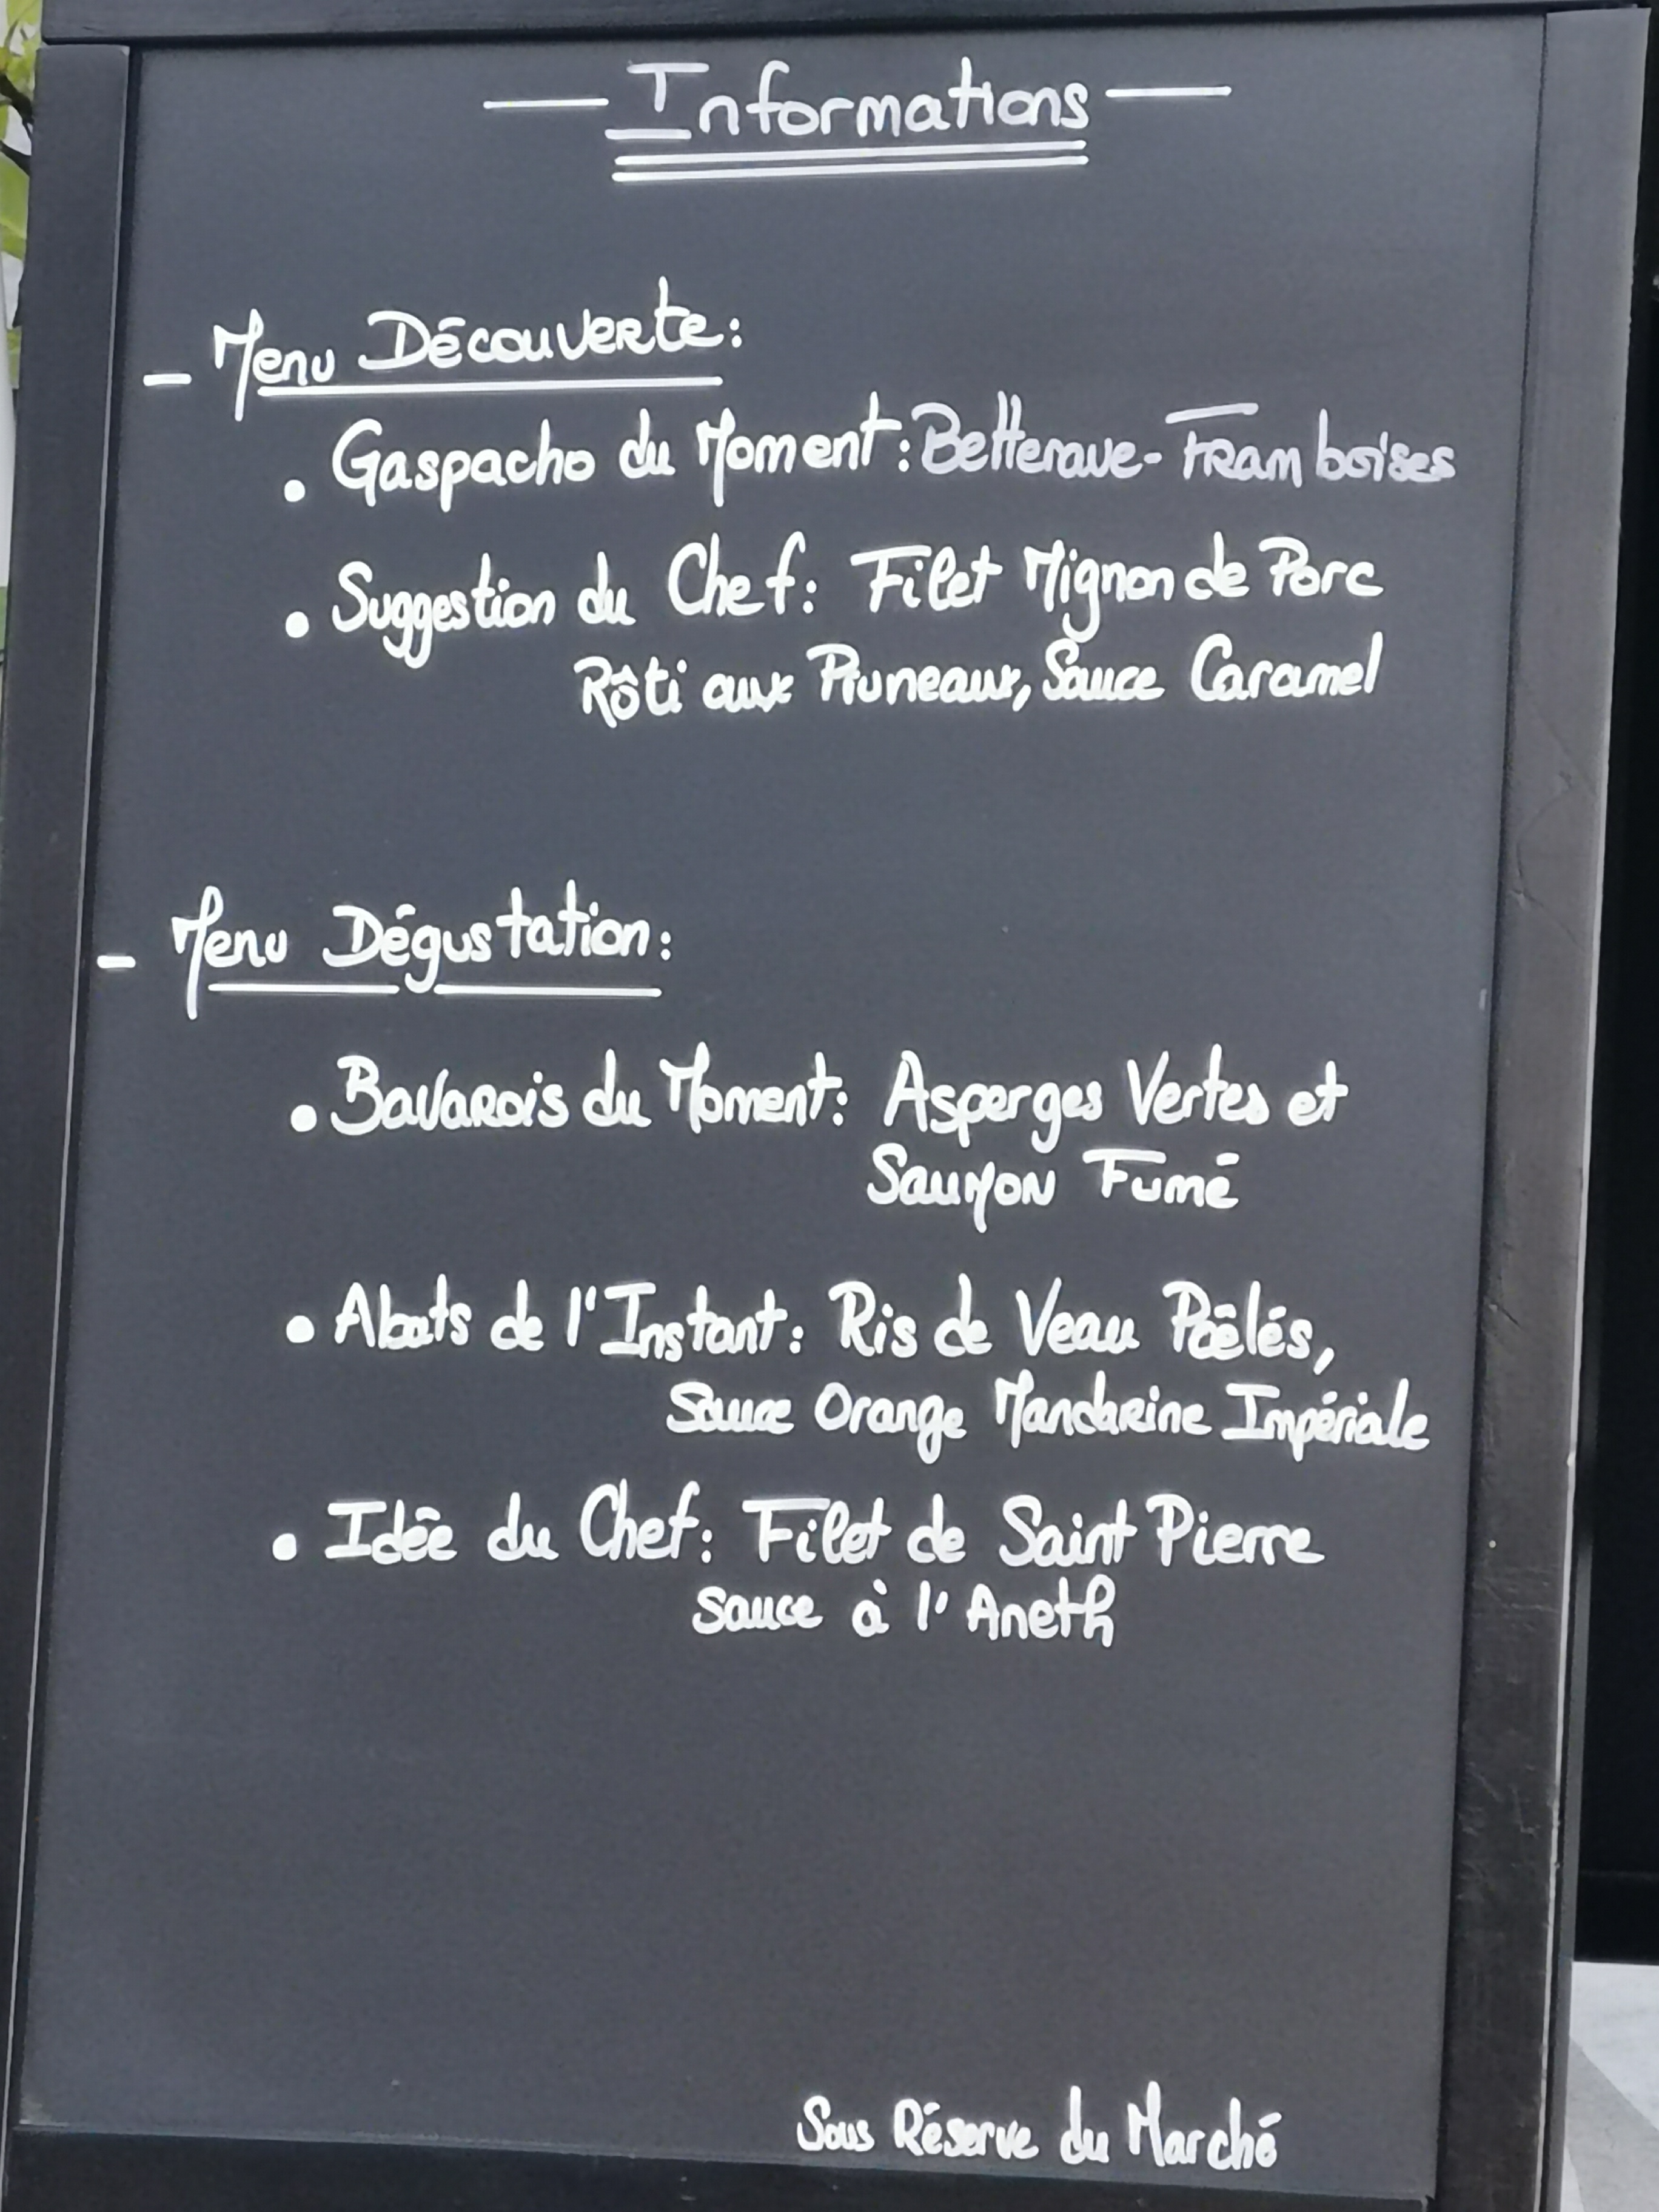 Informations
- Menu Découverte:
• Gaspacho du Moment: Betterave-Framboises
• Suggestion du Chef: Filet Mignon de Porc
Rôti aux Pruneaux, Sauce Caramel
- Menu Dégustation:
• Bavarois du Moment: Asperges Vertes et
Saumon Fumé
• Abats de l'Instant: Ris de Veau Poêlés,
Sauce Orange Mandarine Impériale
• Idée du Chef: Filet de Saint Pierre
Sauce à l'Aneth
Sous Réserve du Marché